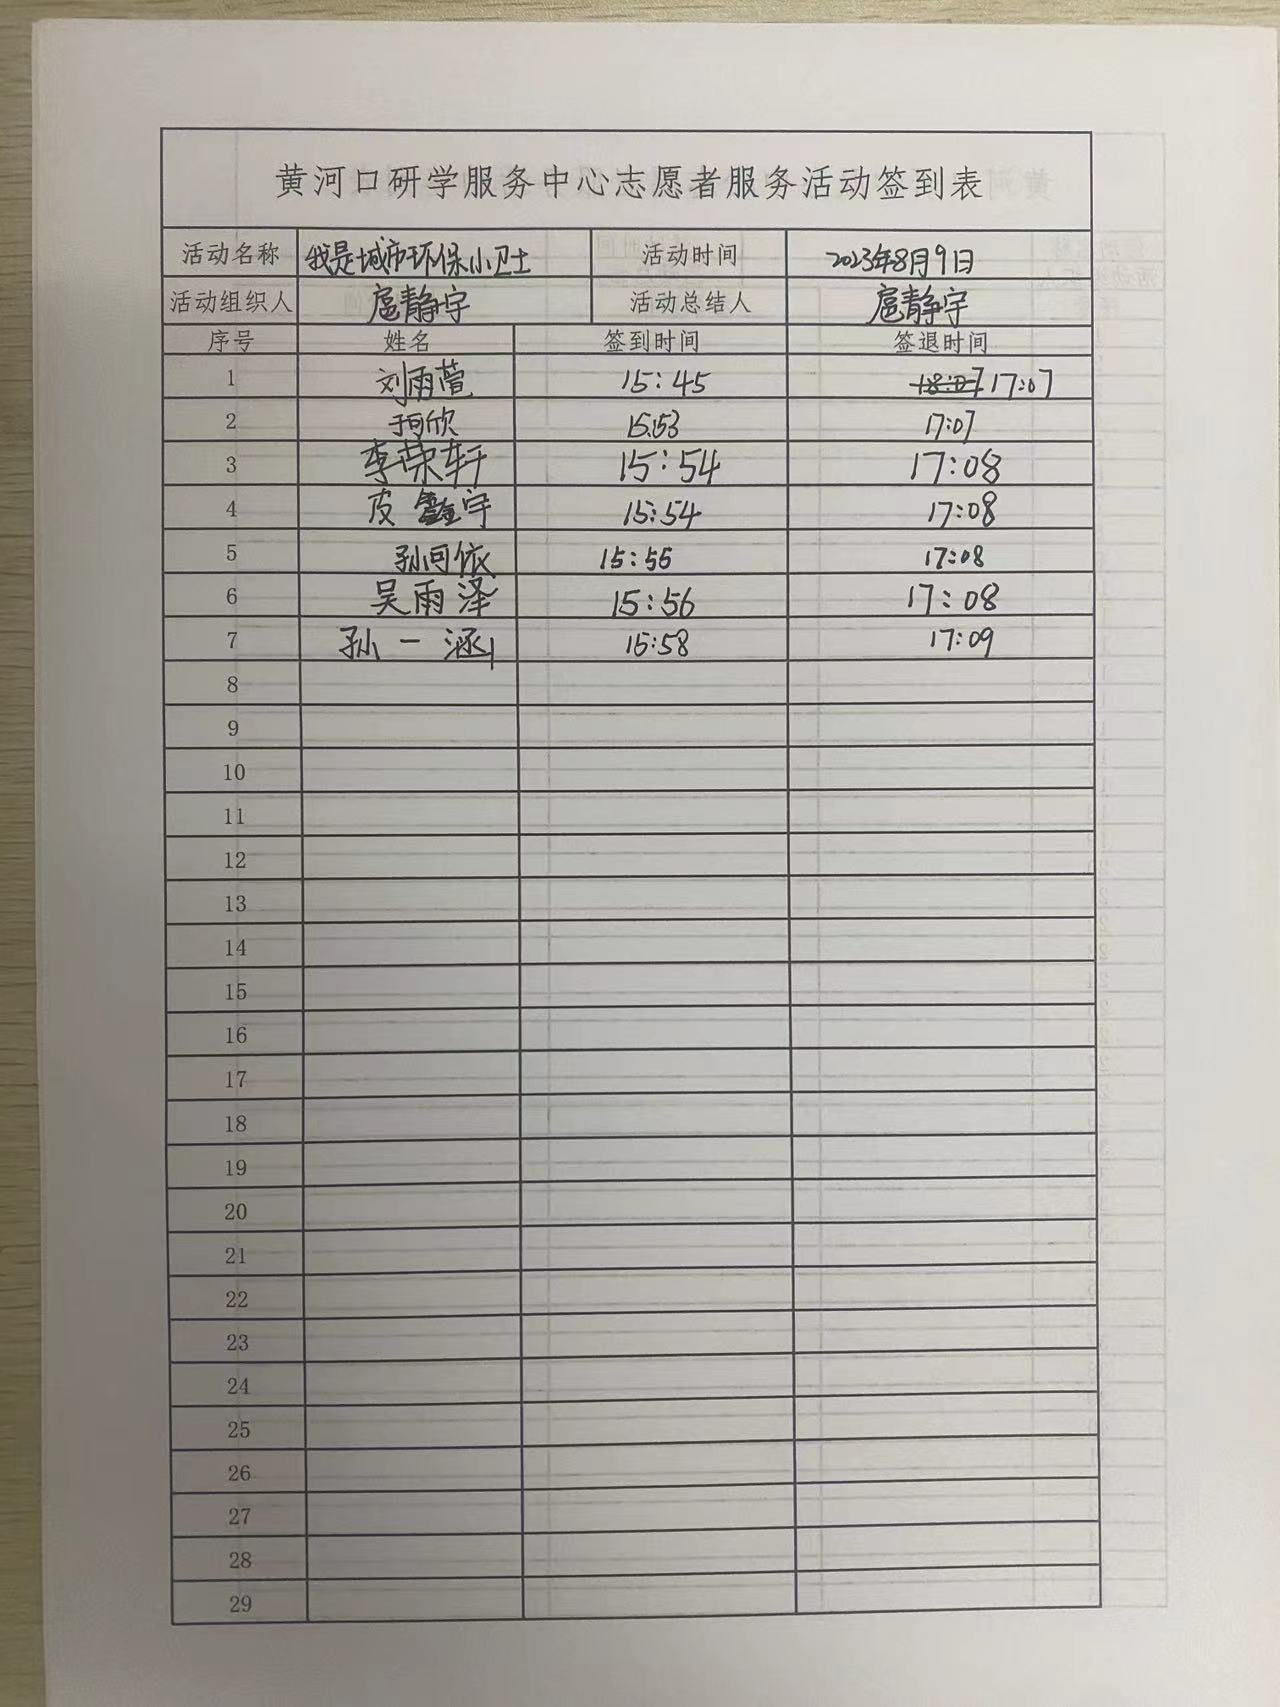 黄河口研学服务中心志愿者服务活动签到表
活动名称 我是城市环保小卫士 活动时间 2023年8月9日
活动组织人 扈静宇 活动总结人 扈静宇
序号 姓名 签到时间 签退时间
1 刘雨萱 15:45 17:07
2 于可欣 15:53 17:07
3 李荣轩 15:54 17:08
4 皮鑫宇 15:54 17:08
5 孙可依 15:55 17:08
6 吴雨泽 15:56 17:08
7 孙一涵 15:58 17:09
8
9
10
11
12
13
14
15
16
17
18
19
20
21
22
23
24
25
26
27
28
29